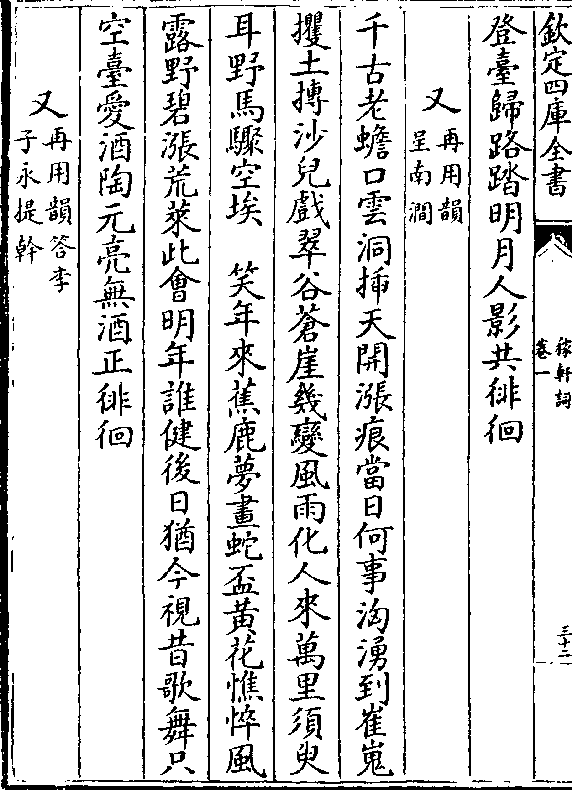 欽定四庫全書
稼軒詞
卷一
三十二
登臺歸路踏明月人影共徘徊
又再用韻
呈南澗
千古老蟾口雲洞揷天開漲痕當日何事洶湧到崔嵬
攫土摶沙兒戲翠谷蒼崖幾變風雨化人來萬里須臾
耳野馬驟空埃　笑年來蕉鹿夢畫蛇盃黃花憔悴風
露野碧漲荒萊此會明年誰健後日猶今視昔歌舞只
空臺愛酒陶元亮無酒正徘徊
又再用韻答李
子永提幹